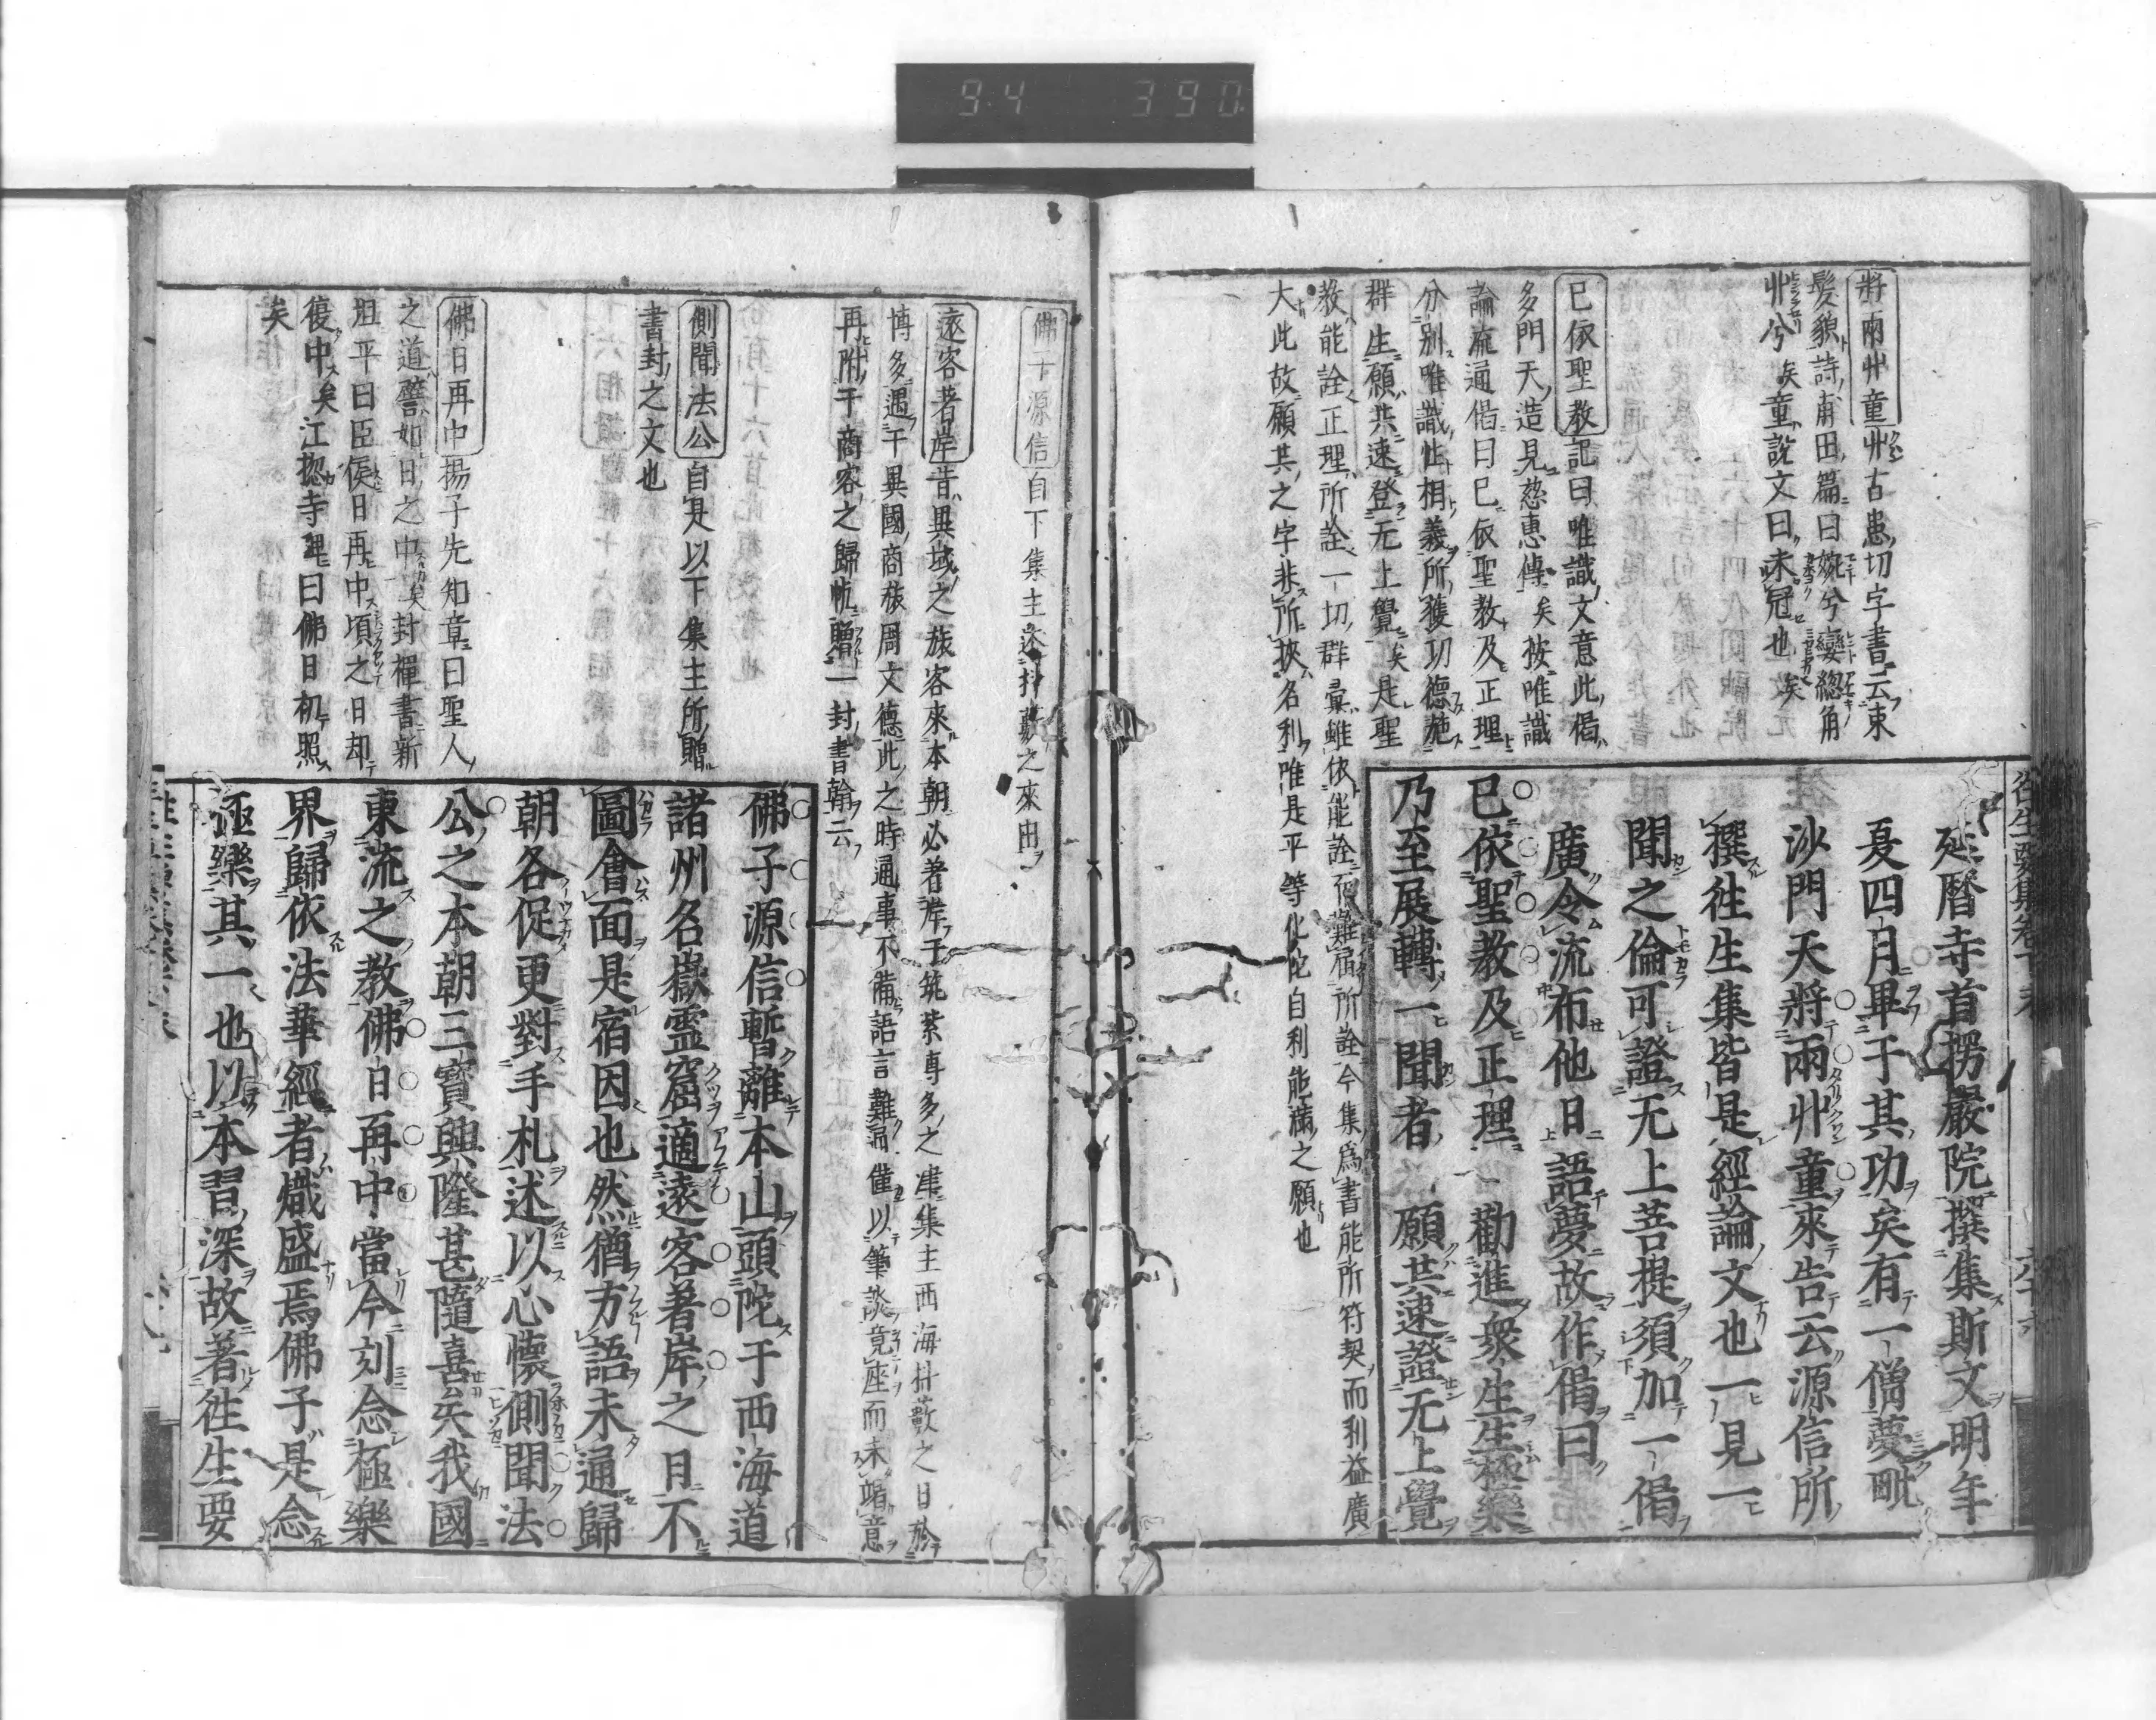 94 390
往生要集卷下末
延曆寺首楞嚴院撰集斯文明年
夏四月畢于其功矣有一僧夢毗
沙門天將兩丱童來告云源信所
撰往生集皆是經論文也一見一
聞之倫可證无上菩提須加一偈
廣令流布他日語夢故作偈曰
已依聖教及正理 勸進衆生生極樂
乃至展轉一聞者 願共速證无上覺
將兩丱童丱古患切字書云束
髮貌詩甫田篇曰婉兮孌兮總角
丱兮矣童說文曰未冠也矣
已依聖教記曰唯識文意此偈
多門天造見慈惠傳矣按唯識
論流通偈曰已依聖教及正理
分別唯識性相義所獲功德施
群生願共速登无上覺矣是聖
教能詮正理所詮一切群彙雖依能詮不難屆所詮今集爲書能所符契而利益廣
大此故願其之字非所挾名利唯是平等化佗自利能滿之願也
佛子源信自下集主述抖藪之來由
遠客著岸昔異域之旅客來本朝必著岸于筑紫專多之津集主西海抖藪之日於
博多遇于異國商旅周文德此之時通事不備語言難通僅以筆談竟座而未竭意
再附于商客之歸帆贈一封書翰云
側聞法公自是以下集主所贈
書封之文也
佛日再中揚子先知章曰聖人
之道譬如日之中矣封禪書新
垣平曰臣侯日再中頃之日却
復中矣江揔寺碑曰佛日初照
矣
佛子源信暫離本山頭陀于西海道
諸州名嶽靈窟適遠客著岸之日不
圖會面是宿因也然猶方語未通歸
朝各促更對手札述以心懷側聞法
公之本朝三寶興隆甚隨喜矣我國
東流之教佛日再中當今刻念極樂
界歸依法華經者熾盛焉佛子是念
極樂其一也以本習深故著往生要